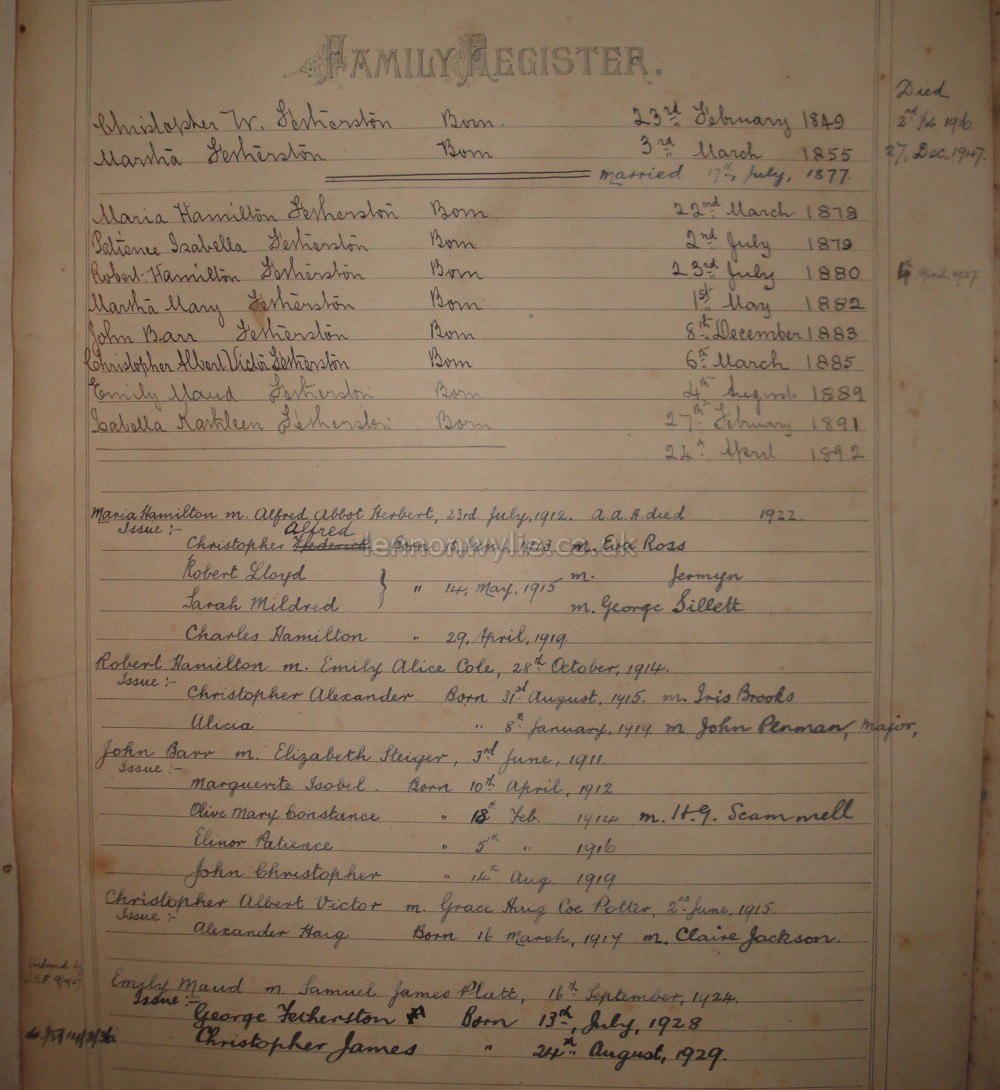 FAMILY REGISTER.
Died
Christopher W. Fetherston Born. 23rd February 1849 2nd Feb 1916
Martha Fetherston Born 3rd March 1855 27, Dec. 1947.
married 17th, July, 1877.
Maria Hamilton Fetherston Born 22nd March 1878
Patience Isabella Fetherston Born 2nd July 1879
Robert Hamilton Fetherston Born 23rd July 1880 April, 1927
Martha Mary Fetherston Born 1st May 1882
John Barr Fetherston Born 8th December 1883
Christopher Albert Victor Fetherston Born 6th March 1885
Emily Maud Fetherston Born 4th August 1889
Isabella Kathleen Fetherston Born 27th February 1891
24th April 1892
Maria Hamilton m. Alfred Abbot Herbert, 23rd. July, 1912. A.A.H. died 1922.
Issue :- Alfred
Christopher Frederick Born 1913 m. Eva Ross
lennonwylie.co.uk
Robert Lloyd } " 14, May, 1915 m. Jermyn
Sarah Mildred m. George Sillett
Charles Hamilton " 29, April, 1919.
Robert Hamilton m. Emily Alice Cole, 28th October, 1914.
Issue :-
Christopher Alexander Born 31st August, 1915. m. Iris Brooks
Alicia " 8th January, 1919 m John Penman, Major,
John Barr m. Elizabeth Steiger, 3rd June, 1911.
Issue :-
Marguerite Isobel. Born 10th April, 1912
Olive Mary Constance " 18th Feb. 1914 m. H.G. Scammell
Elinor Patience " 5th " 1916
John Christopher " 14th Aug. 1919
Christopher Albert Victor m. Grace Haig Coe Potter, 2nd June, 1915.
Issue :-
Alexander Haig Born 16 March, 1917 m. Claire Jackson.
Entered by
Emily Maud m. Samuel James Platt, 16th September, 1924.
Issue :-
George Fetherston Born 13th, July, 1928
Christopher James " 24th August, 1929.